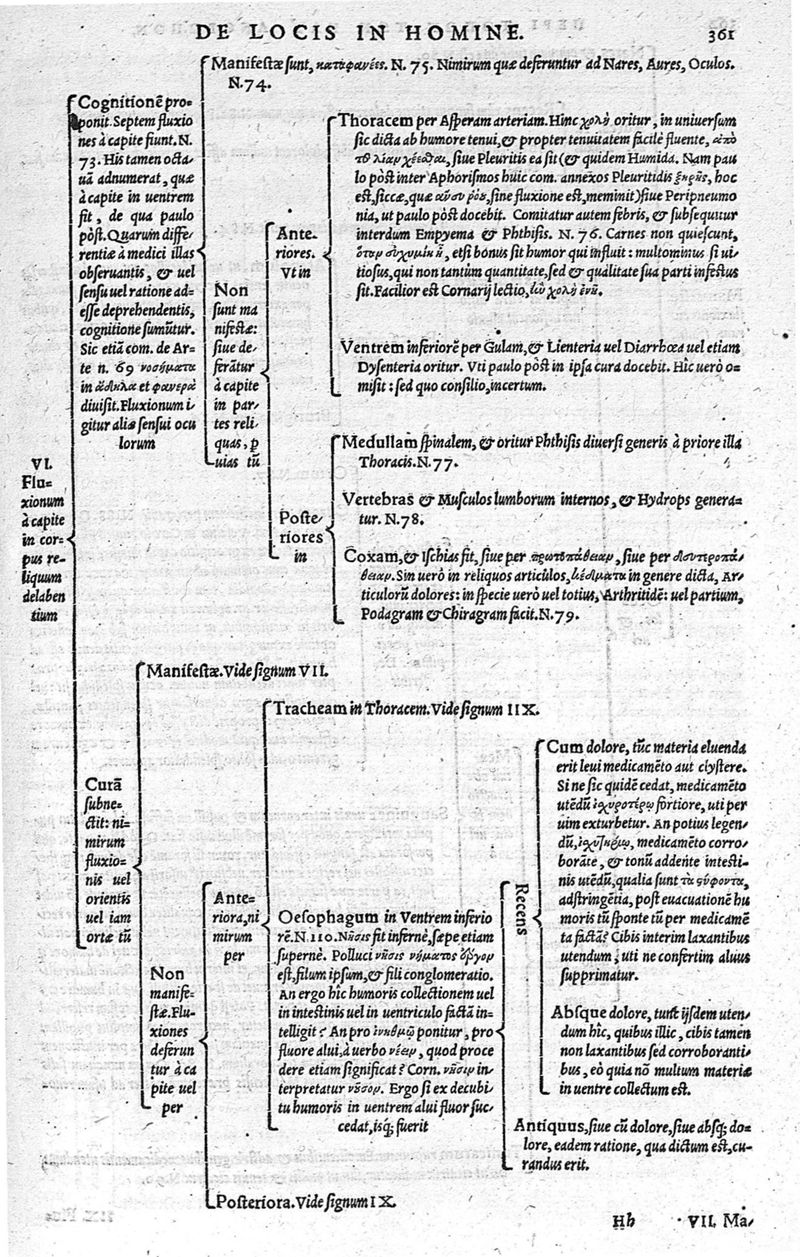 DE LOCIS IN HOMINE.
361
VI.
Flu=
xionum
à capite
in cor=
pus re=
liquum
delaben
tium
Cognitionẽ pro=
ponit. Septem fluxio
nes à capite fiunt. N.
73. His tamen octa=
uã adnumerat, quæ
à capite in uentrem
fit, de qua paulo
pòst. Quarum diffe=
rentiæ à medici illas
obseruantis, & uel
sensu uel ratione ad=
esse deprehendentis,
cognitione sumũtur.
Sic etiã com. de Ar=
te n. 69 νοσήματα
in ἄδηλα et φανερὰ
diuisit. Fluxionum i=
gitur aliæ sensui ocu
lorum
Manifestæ sunt, καταφανέες. N. 75. Nimirum quæ deferuntur ad Nares, Aures, Oculos.
N. 74.
Non
sunt ma
nifestæ:
siue de=
ferãtur
à capite
in par=
tes reli=
quas, ꝑ
uias tũ
Ante=
riores.
Vt in
Thoracem per Asperam arteriam. Hinc χολὴ oritur, in uniuersum
sic dicta ab humore tenui, & propter tenuitatem facilè fluente, ἀπὸ
siue Pleuritis ea sit (& quidem Humida. Nam pau
lo pòst inter Aphorismos huic com. annexos Pleuritidis ξηρῆς, hoc
est, siccæ, quæ ἄνευ ῥόου, sine fluxione est, meminit) siue Peripneumo
nia, ut paulo pòst docebit. Comitatur autem febris, & subsequitur
interdum Empyema & Phthisis. N. 76. Carnes non quiescunt,
etsi bonus sit humor qui influit: multominus si ui=
tiosus, qui non tantum quantitate, sed & qualitate sua parti infestus
sit. Facilior est Cornarij lectio,
Ventrem inferiorẽ per Gulam, & Lienteria uel Diarrhœa uel etiam
Dysenteria oritur. Vti paulo pòst in ipsa cura docebit. Hic uerò o=
misit: sed quo consilio, incertum.
Poste=
riores
in
Medullam spinalem, & oritur Phthisis diuersi generis à priore illa
Thoracis. N. 77.
Vertebras & Musculos lumborum internos, & Hydrops genera=
tur. N. 78.
Coxam, & Ischias fit, siue per πρωτοπάθειαν, siue per δευτεροπά=
θειαν. Sin uerò in reliquos articulos, κέδματα in genere dicta, Ar=
ticulorũ dolores: in specie uerò uel totius, Arthritidẽ: uel partium,
Podagram & Chiragram facit. N. 79.
Curã
subne=
ctit: ni=
mirum
fluxio=
nis uel
orientis
uel iam
ortæ tũ
Manifestæ. Vide signum VII.
Non
manife=
stæ. Flu=
xiones
deferun
tur à ca
pite uel
per
Ante=
riora, ni
mirum
per
Tracheam in Thoracem. Vide signum IIX.
Oesophagum in Ventrem inferio
rẽ. N. 110. Νῆσις fit infernè, sæpe etiam
supernè. Polluci νῆσις νήματος ἔργον
est, filum ipsum, & fili conglomeratio.
An ergo hîc humoris collectionem uel
in intestinis uel in uentriculo factã in=
telligit? An pro ponitur, pro
fluore alui, à uerbo νέειν, quod proce
dere etiam significat? Corn. νῆσιν in=
terpretatur νῦσον. Ergo si ex decubi=
tu humoris in uentrem alui fluor suc=
cedat, isq; fuerit
Recens
Cum dolore, tũc materia eluenda
erit leui medicamẽto aut clystere.
Si ne sic quidẽ cedat, medicamẽto
utẽdũ ἰσχυροτέρῳ fortiore, uti per
uim exturbetur. An potius legen=
dũ, medicamẽto corro=
borãte, & tonũ addente intesti=
nis utẽdũ, qualia sunt τὰ στύφοντα,
adstringẽtia, post euacuationẽ hu
moris tũ sponte tũ per medicamẽ
ta factã? Cibis interim laxantibus
utendum, uti ne confertim aluus
supprimatur.
Absque dolore, tunc ijsdem uten=
dum hîc, quibus illic, cibis tamen
non laxantibus sed corroboranti=
bus, eò quia nõ multum materiæ
in uentre collectum est.
Antiquus, siue cũ dolore, siue absq; do=
lore, eadem ratione, qua dictum est, cu=
randus erit.
Posteriora. Vide signum IX.
Hh
VII. Ma=